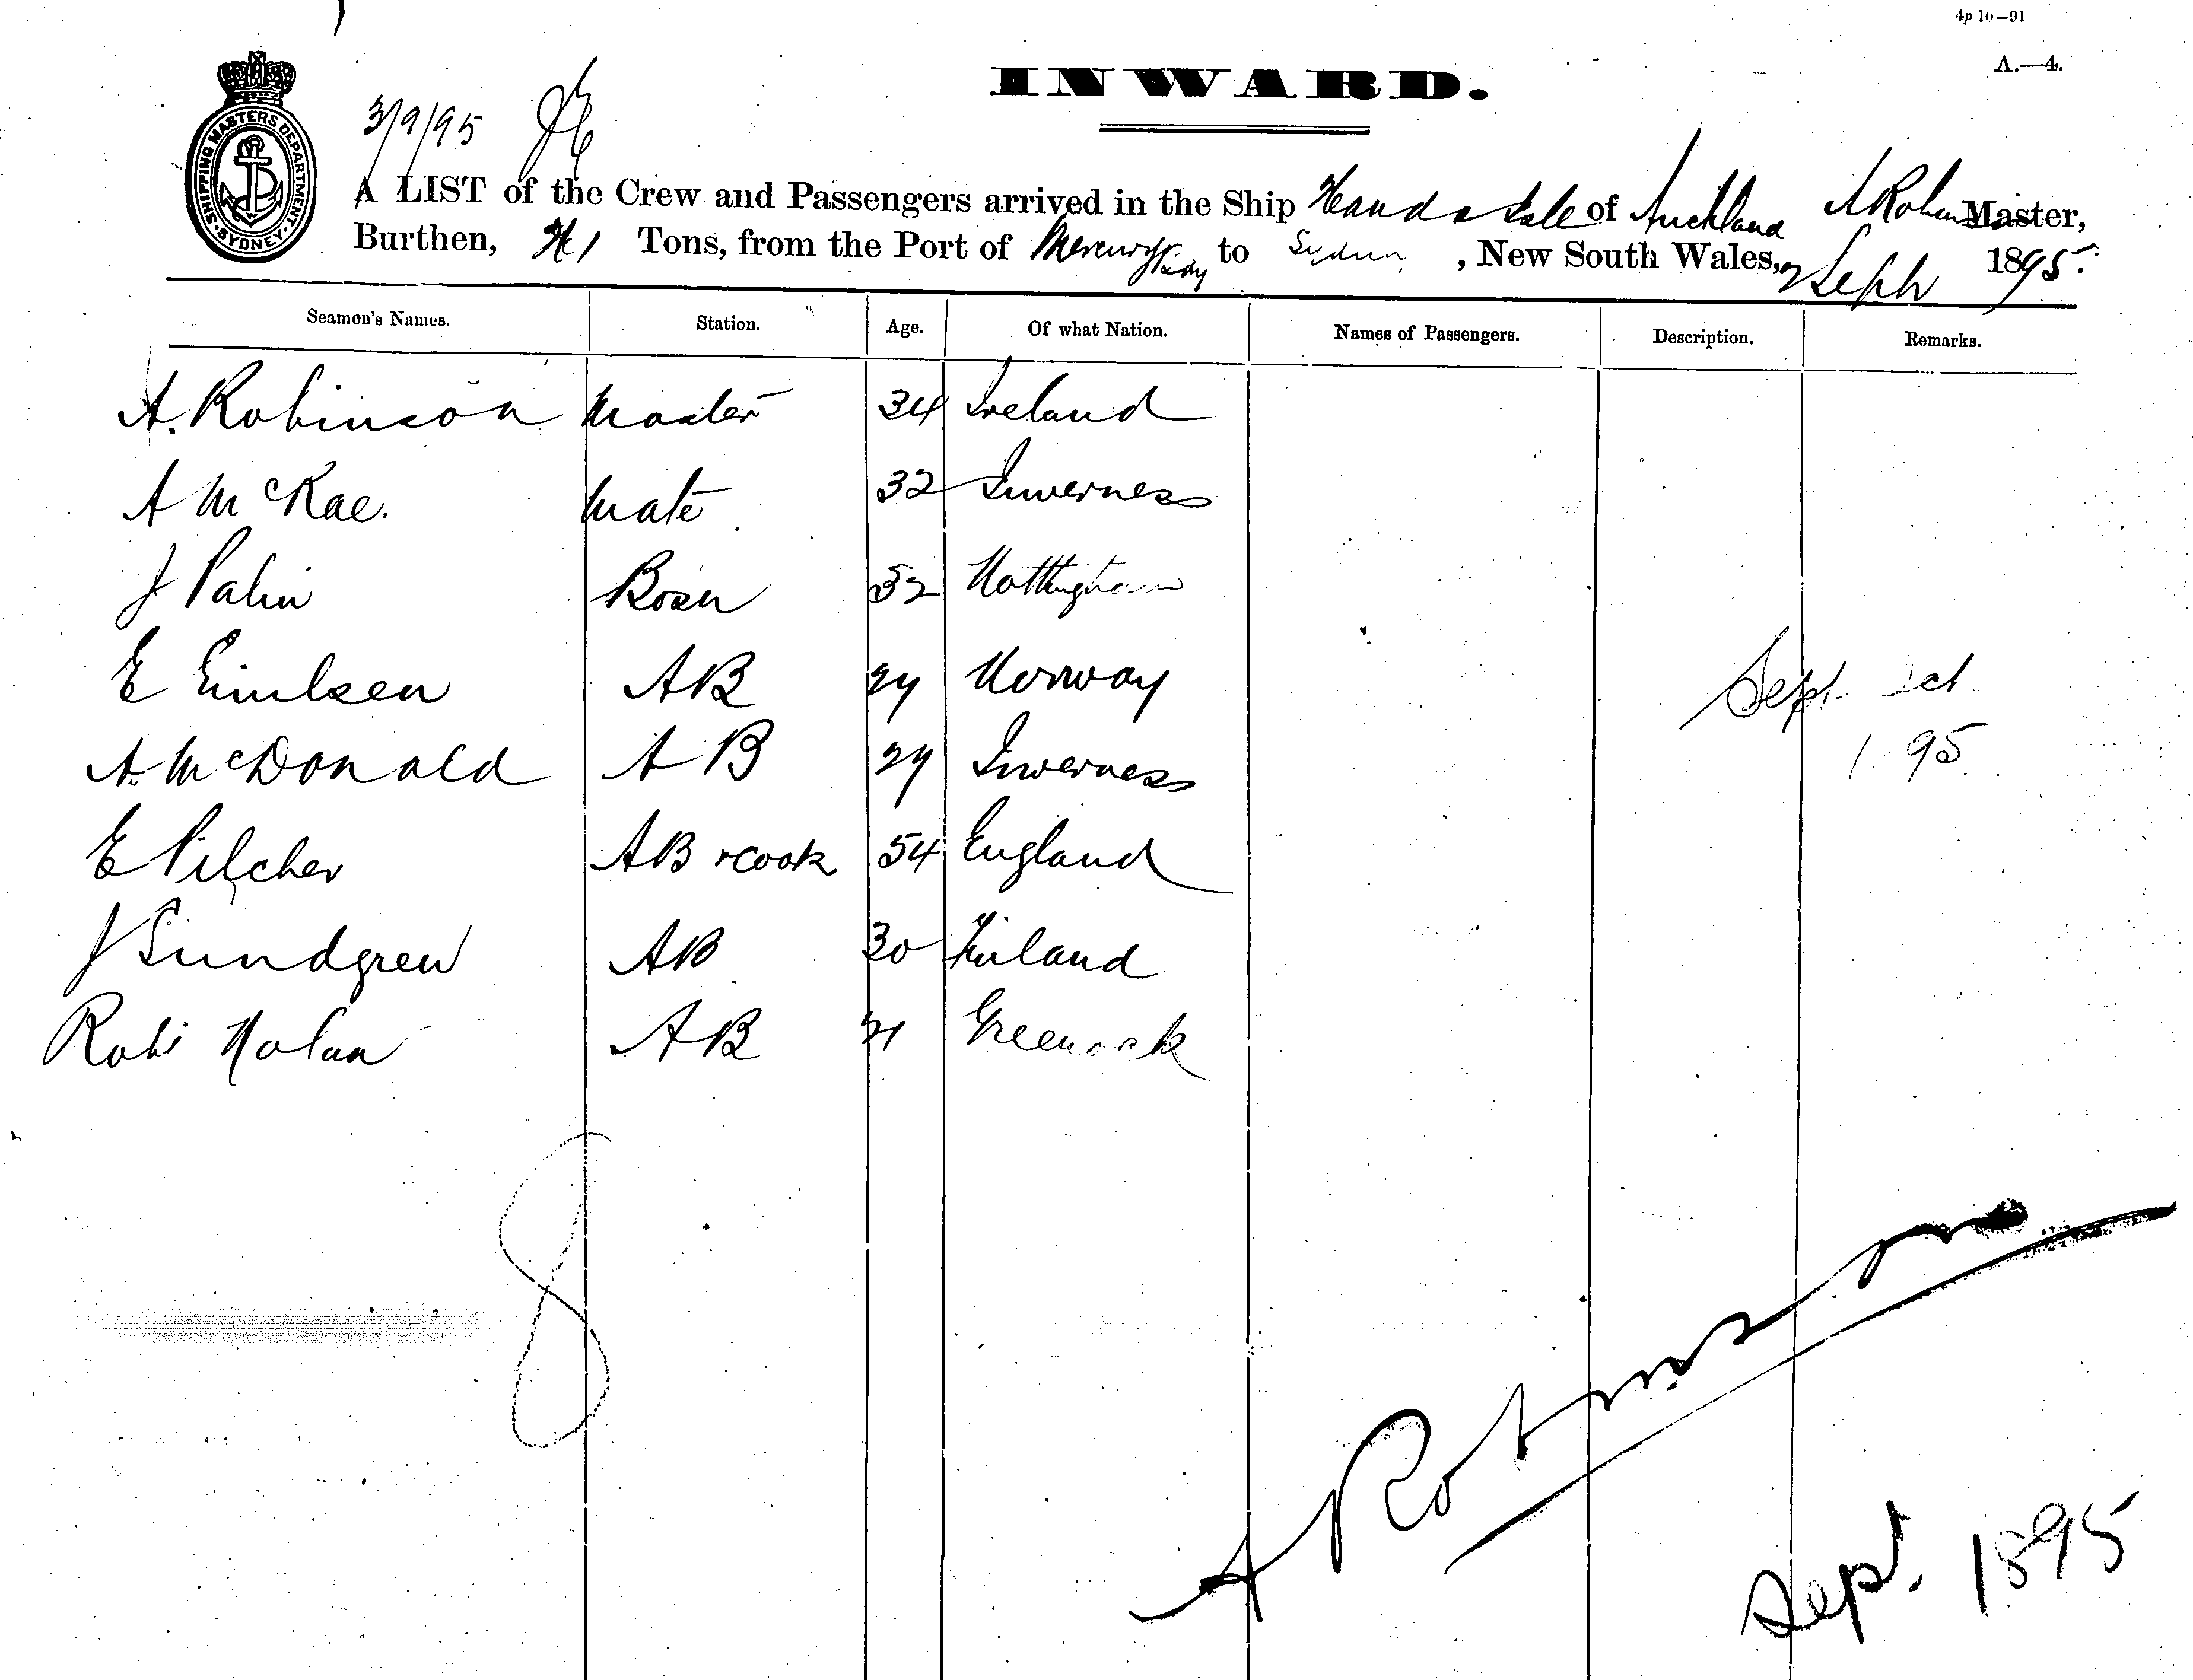 4p 10—91
A.—4.
INWARD.
SHIPPING MASTERS DEPARTMENT
SYDNEY
3/9/95
A LIST of the Crew and Passengers arrived in the Ship Handa Isle of Auckland A Robinson Master,
Burthen, Tons, from the Port of Mercury Bay to Sydney, New South Wales, 2 Sept 1895.
Seamen's Names. Station. Age. Of what Nation. Names of Passengers. Description. Remarks.
A. Robinson Master 34 Ireland
A McRae. Mate 32 Inverness
J Palin Bosn 32 Nottingham
E Emilsen AB 24 Norway
A. McDonald AB 24 Inverness
E Pilcher AB & Cook 54 England
J Sundgren AB 30 Finland
Robt Nolan AB 21 Greenock
Sept 1st
95
8
A Robinson
Sept. 1895